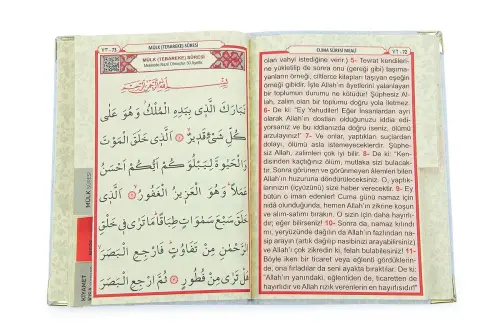 ٧٣ - 73
MÜLK (TEBAREKE) SÛRESİ
MÜLK (TEBAREKE) SÛRESİ
Mekkede Nazil Olmuştur. 30 Ayettir.
بِسْمِ اللّٰهِ الرَّحْمٰنِ الرَّحِيمِ
تَبَارَكَ الَّذِي بِيَدِهِ الْمُلْكُ وَهُوَ عَلٰى
كُلِّ شَيْءٍ قَدِيرٌ ۝ اَلَّذِي خَلَقَ الْمَوْتَ
وَالْحَيٰوةَ لِيَبْلُوَكُمْ اَيُّكُمْ اَحْسَنُ
عَمَلًا وَهُوَ الْعَزِيزُ الْغَفُورُ ۝ اَلَّذِي
خَلَقَ سَبْعَ سَمٰوَاتٍ طِبَاقًا مَا تَرٰى فِي خَلْقِ
الرَّحْمٰنِ مِنْ تَفَاوُتٍ فَارْجِعِ الْبَصَرَ
هَلْ تَرٰى مِنْ فُطُورٍ ۝ ثُمَّ ارْجِعِ الْبَصَرَ
MÜLK SÛRESİ
KIYAMET
CUMA SÛRESİ MEALİ
٧٢ - 72
olan vahyi istediğine verir.) 5- Tevrat kendileri-
ne yükletilip de sonra onu (gereği gibi) taşıma-
yanların örneği, ciltlerce kitapları taşıyan eşeğin
örneği gibidir. İşte Allah'ın âyetlerini yalanlayan
bir toplumun durumu ne kötüdür! Şüphesiz Al-
lah, zalim olan bir toplumu doğru yola iletmez.
6- De ki: "Ey Yahudiler! Eğer insanlardan ayrı
olarak Allah'ın dostları olduğunuzu iddia edi-
yorsanız ve bu iddianızda doğru iseniz, ölümü
arzulayınız!" 7- Ve onlar, yaptıkları suçlardan
dolayı, ölümü asla istemeyeceklerdir. Şüphesiz
Allah, zalimleri çok iyi bilir. 8- De ki: "Ken-
disinden kaçtığınız ölüm, mutlaka sizi bulacak-
tır. Sonra görünen ve görünmeyen âlemleri bilen
Allah'ın huzuruna döndürüleceksiniz. O, yaptık-
larınızın (içyüzünü) size haber verecektir. 9- Ey
bütün o iman edenler! Cuma günü namaz için
nidâ olunduğunda, hemen Allah'ın zikrine koşun
ve alım-satımı bırakın. O sizin için daha hayırlı-
dır; eğer bilirseniz! 10- Sonra da, namaz kılındı
mı, yeryüzünde dağılın da Allah'ın fazlından na-
sip arayın (artık dağılıp nasibinizi arayabilirsiniz)
ve Allah'ı çok zikredin ki, felah bulabilesiniz! 11-
Böyle iken bir ticaret veya eğlenti gördükleri-
nde, ona fırladılar da seni ayakta bıraktılar. De ki:
"Allah'ın yanındaki, eğlentiden de, ticaretten de
hayırlıdır ve Allah rızık verenlerin en hayırlısıdır!"